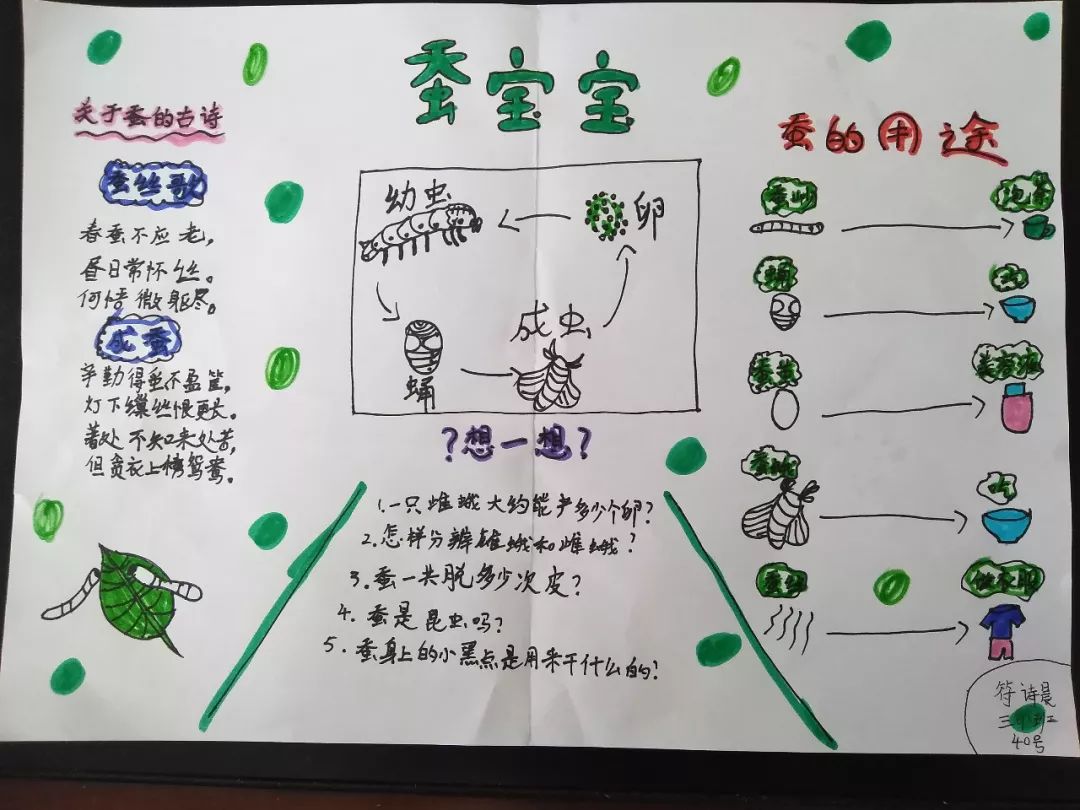 蚕宝宝
关于蚕的古诗
蚕丝歌
春蚕不应老，
昼日常怀丝。
何悟微躯尽。
成蚕
辛勤得茧不盈筐，
灯下缫丝恨更长。
着处不知来处苦，
但贪衣上绣鸳鸯。
幼虫
卵
成虫
蛹
?想一想?
1.一只雌蛾大约能产多少个卵?
2.怎样分辨雄蛾和雌蛾?
3.蚕一共脱多少次皮?
4.蚕是昆虫吗?
5.蚕身上的小黑点是用来干什么的?
蚕的用途
泡茶
蛹
吃
蚕茧
蚕蛾
吃
蚕丝
做衣服
符诗晨
40号